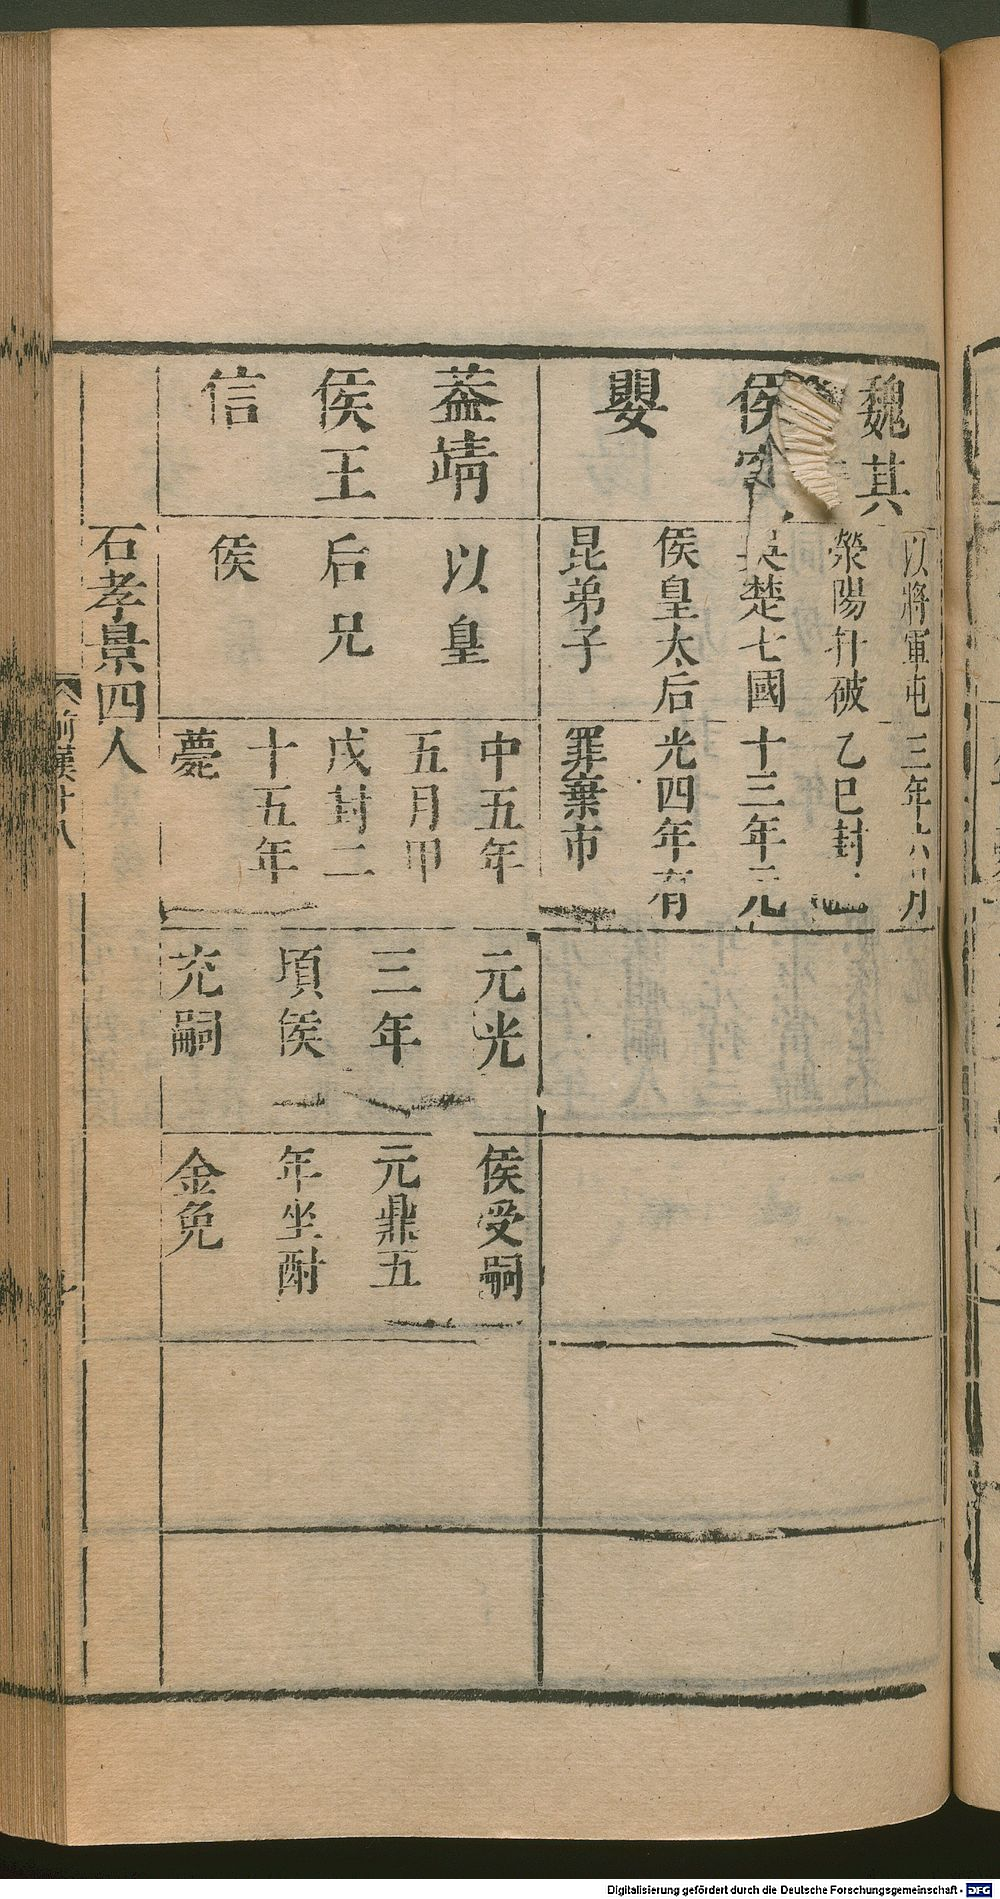 魏其
侯
嬰
以將軍屯
滎陽扞破
吳楚七國
侯皇太后
昆弟子
三年六月
乙巳封
十三年元
光四年有
罪棄市
葢靖
侯王
信
以皇
后兄
侯
中五年
五月甲
戌封二
十五年
薨
元光
三年
頃侯
充嗣
侯受嗣
元鼎五
年坐酎
金免
石孝景四人
前漢十八
十
Digitalisierung gefördert durch die Deutsche Forschungsgemeinschaft - DFG